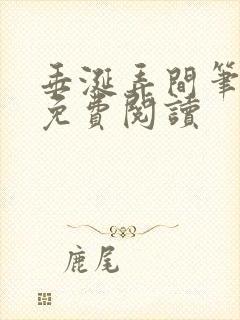 垂涎弄間筆
免費閱讀
鹿尾